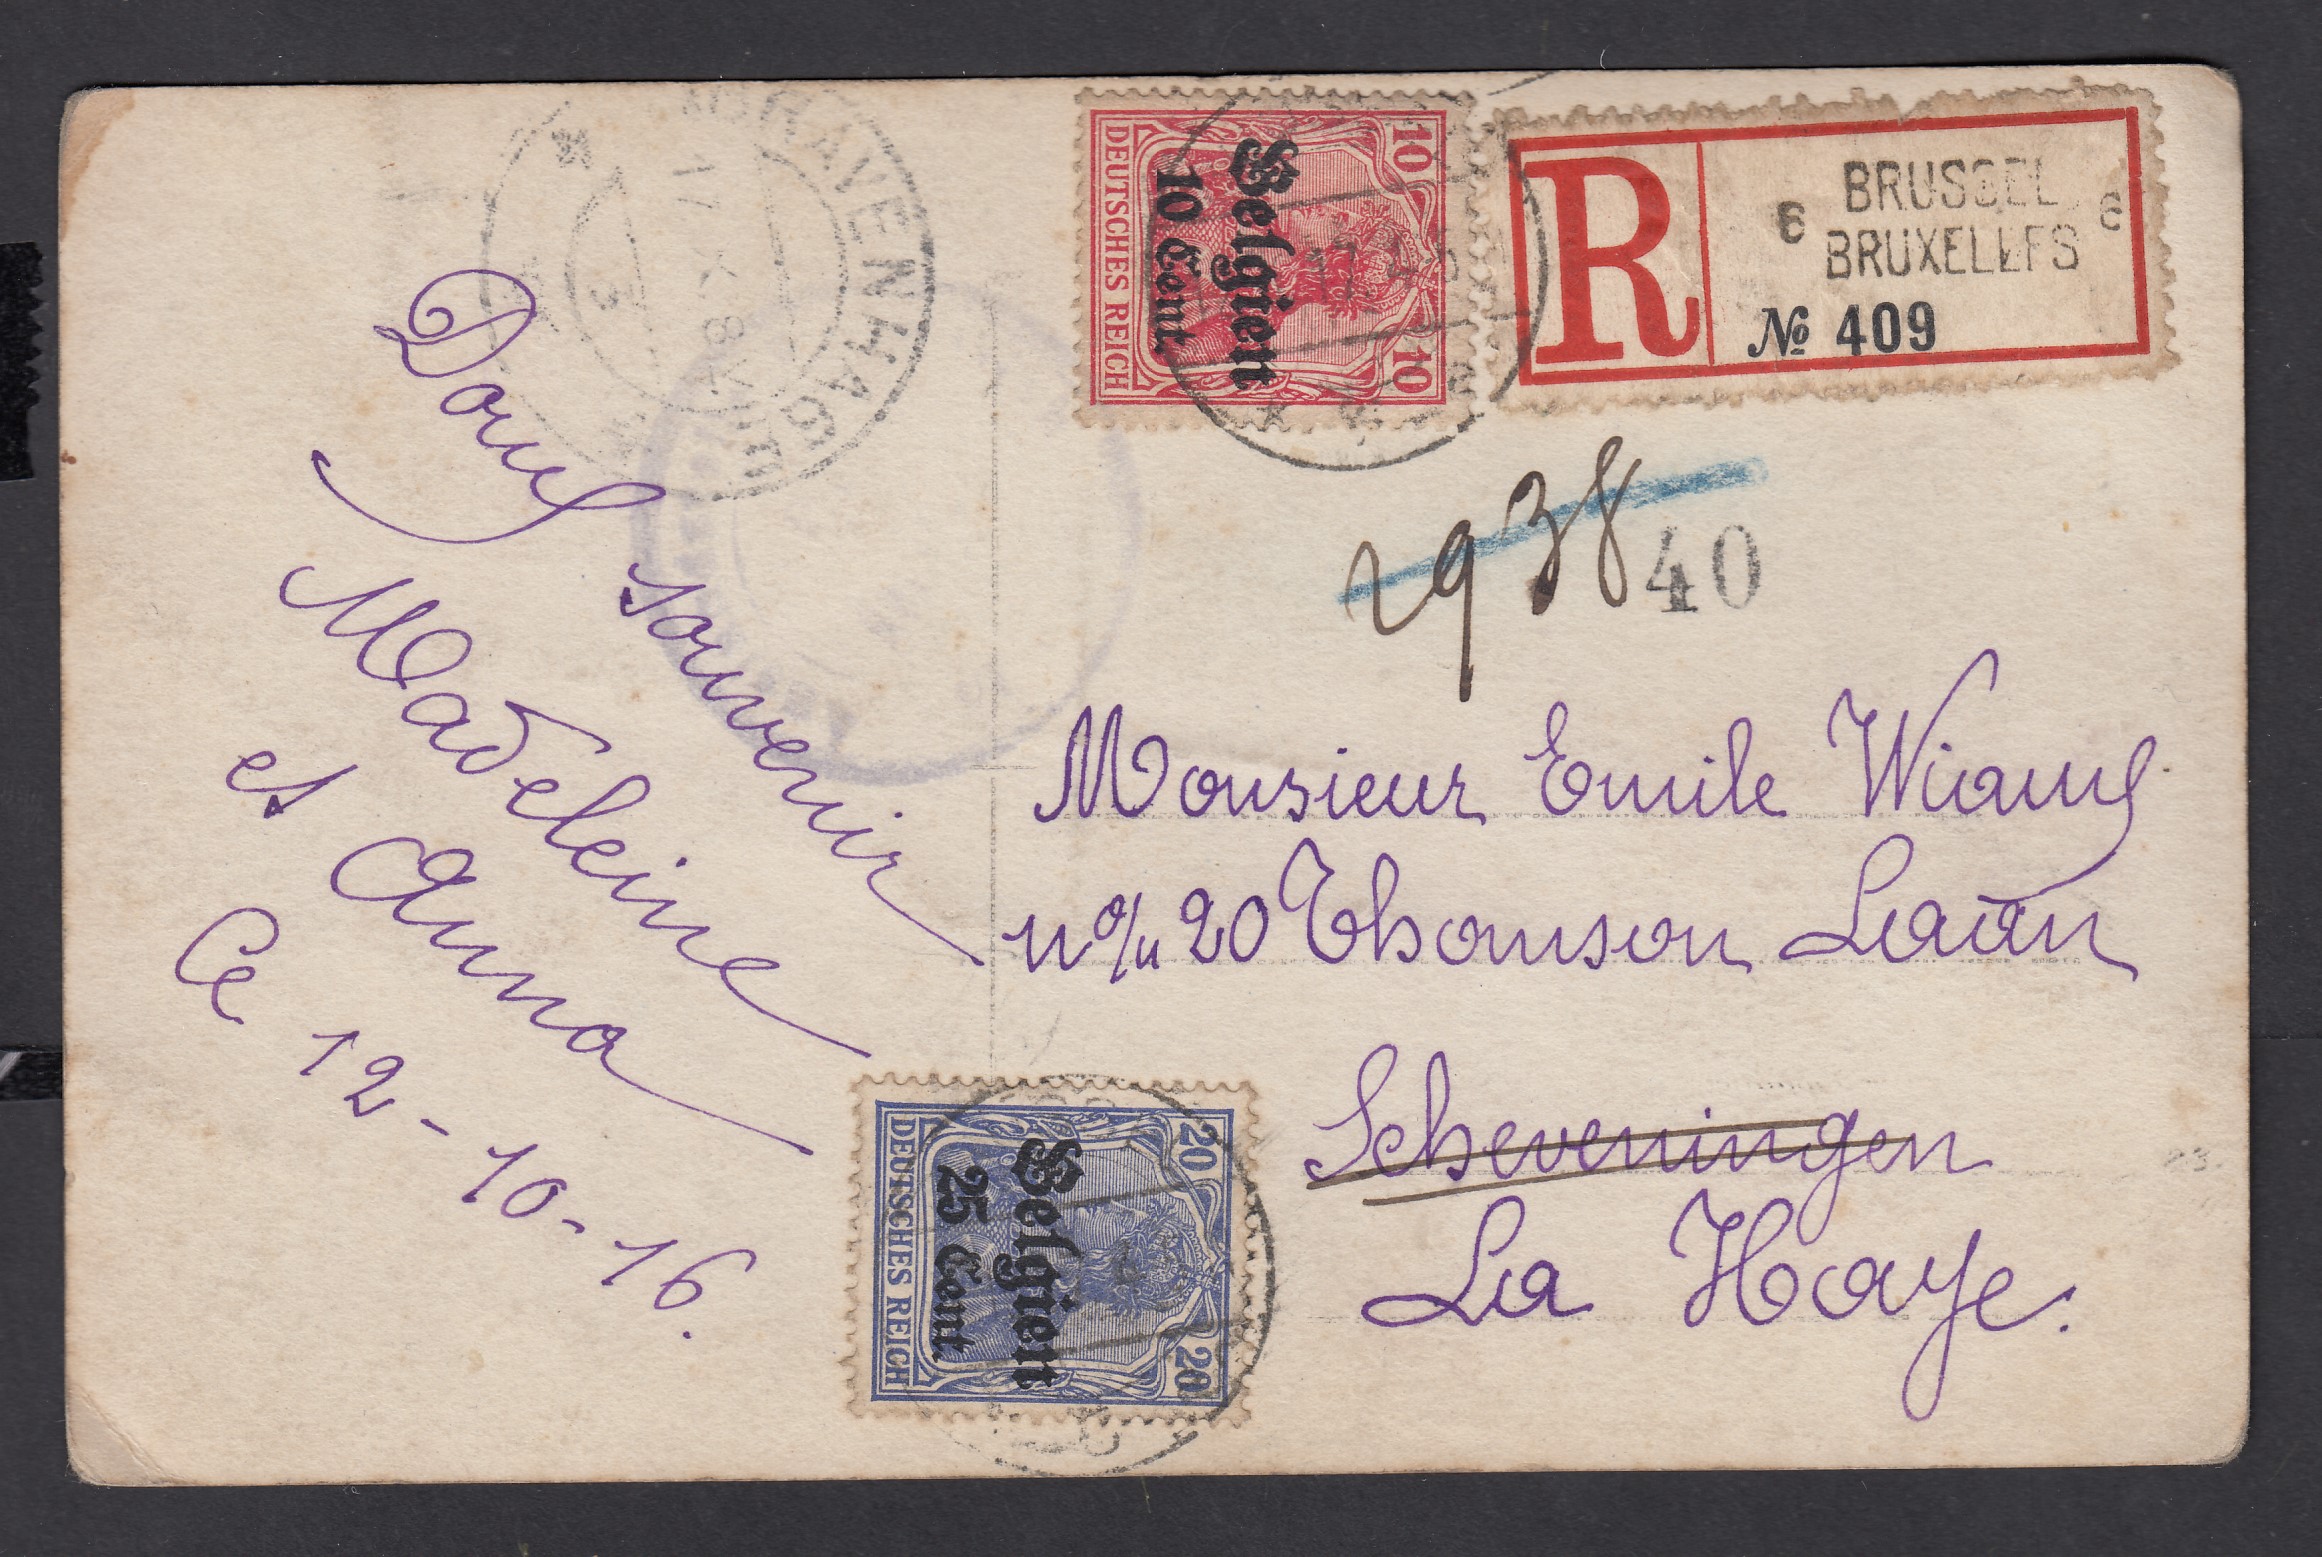 'S GRAVENHAGE
17 X 8 V.M
3
Doux souvenir
Madeleine
et Anna
Ce 12-10-16.
10 10
DEUTSCHES REICH
Belgien
10 Cent.
R
BRUSSEL
6 6
BRUXELLES
№ 409
2938
40
Monsieur Emile
n° 20 Thomson Laan
Scheveningen
La Haye.
20 20
DEUTSCHES REICH
Belgien
25 Cent.